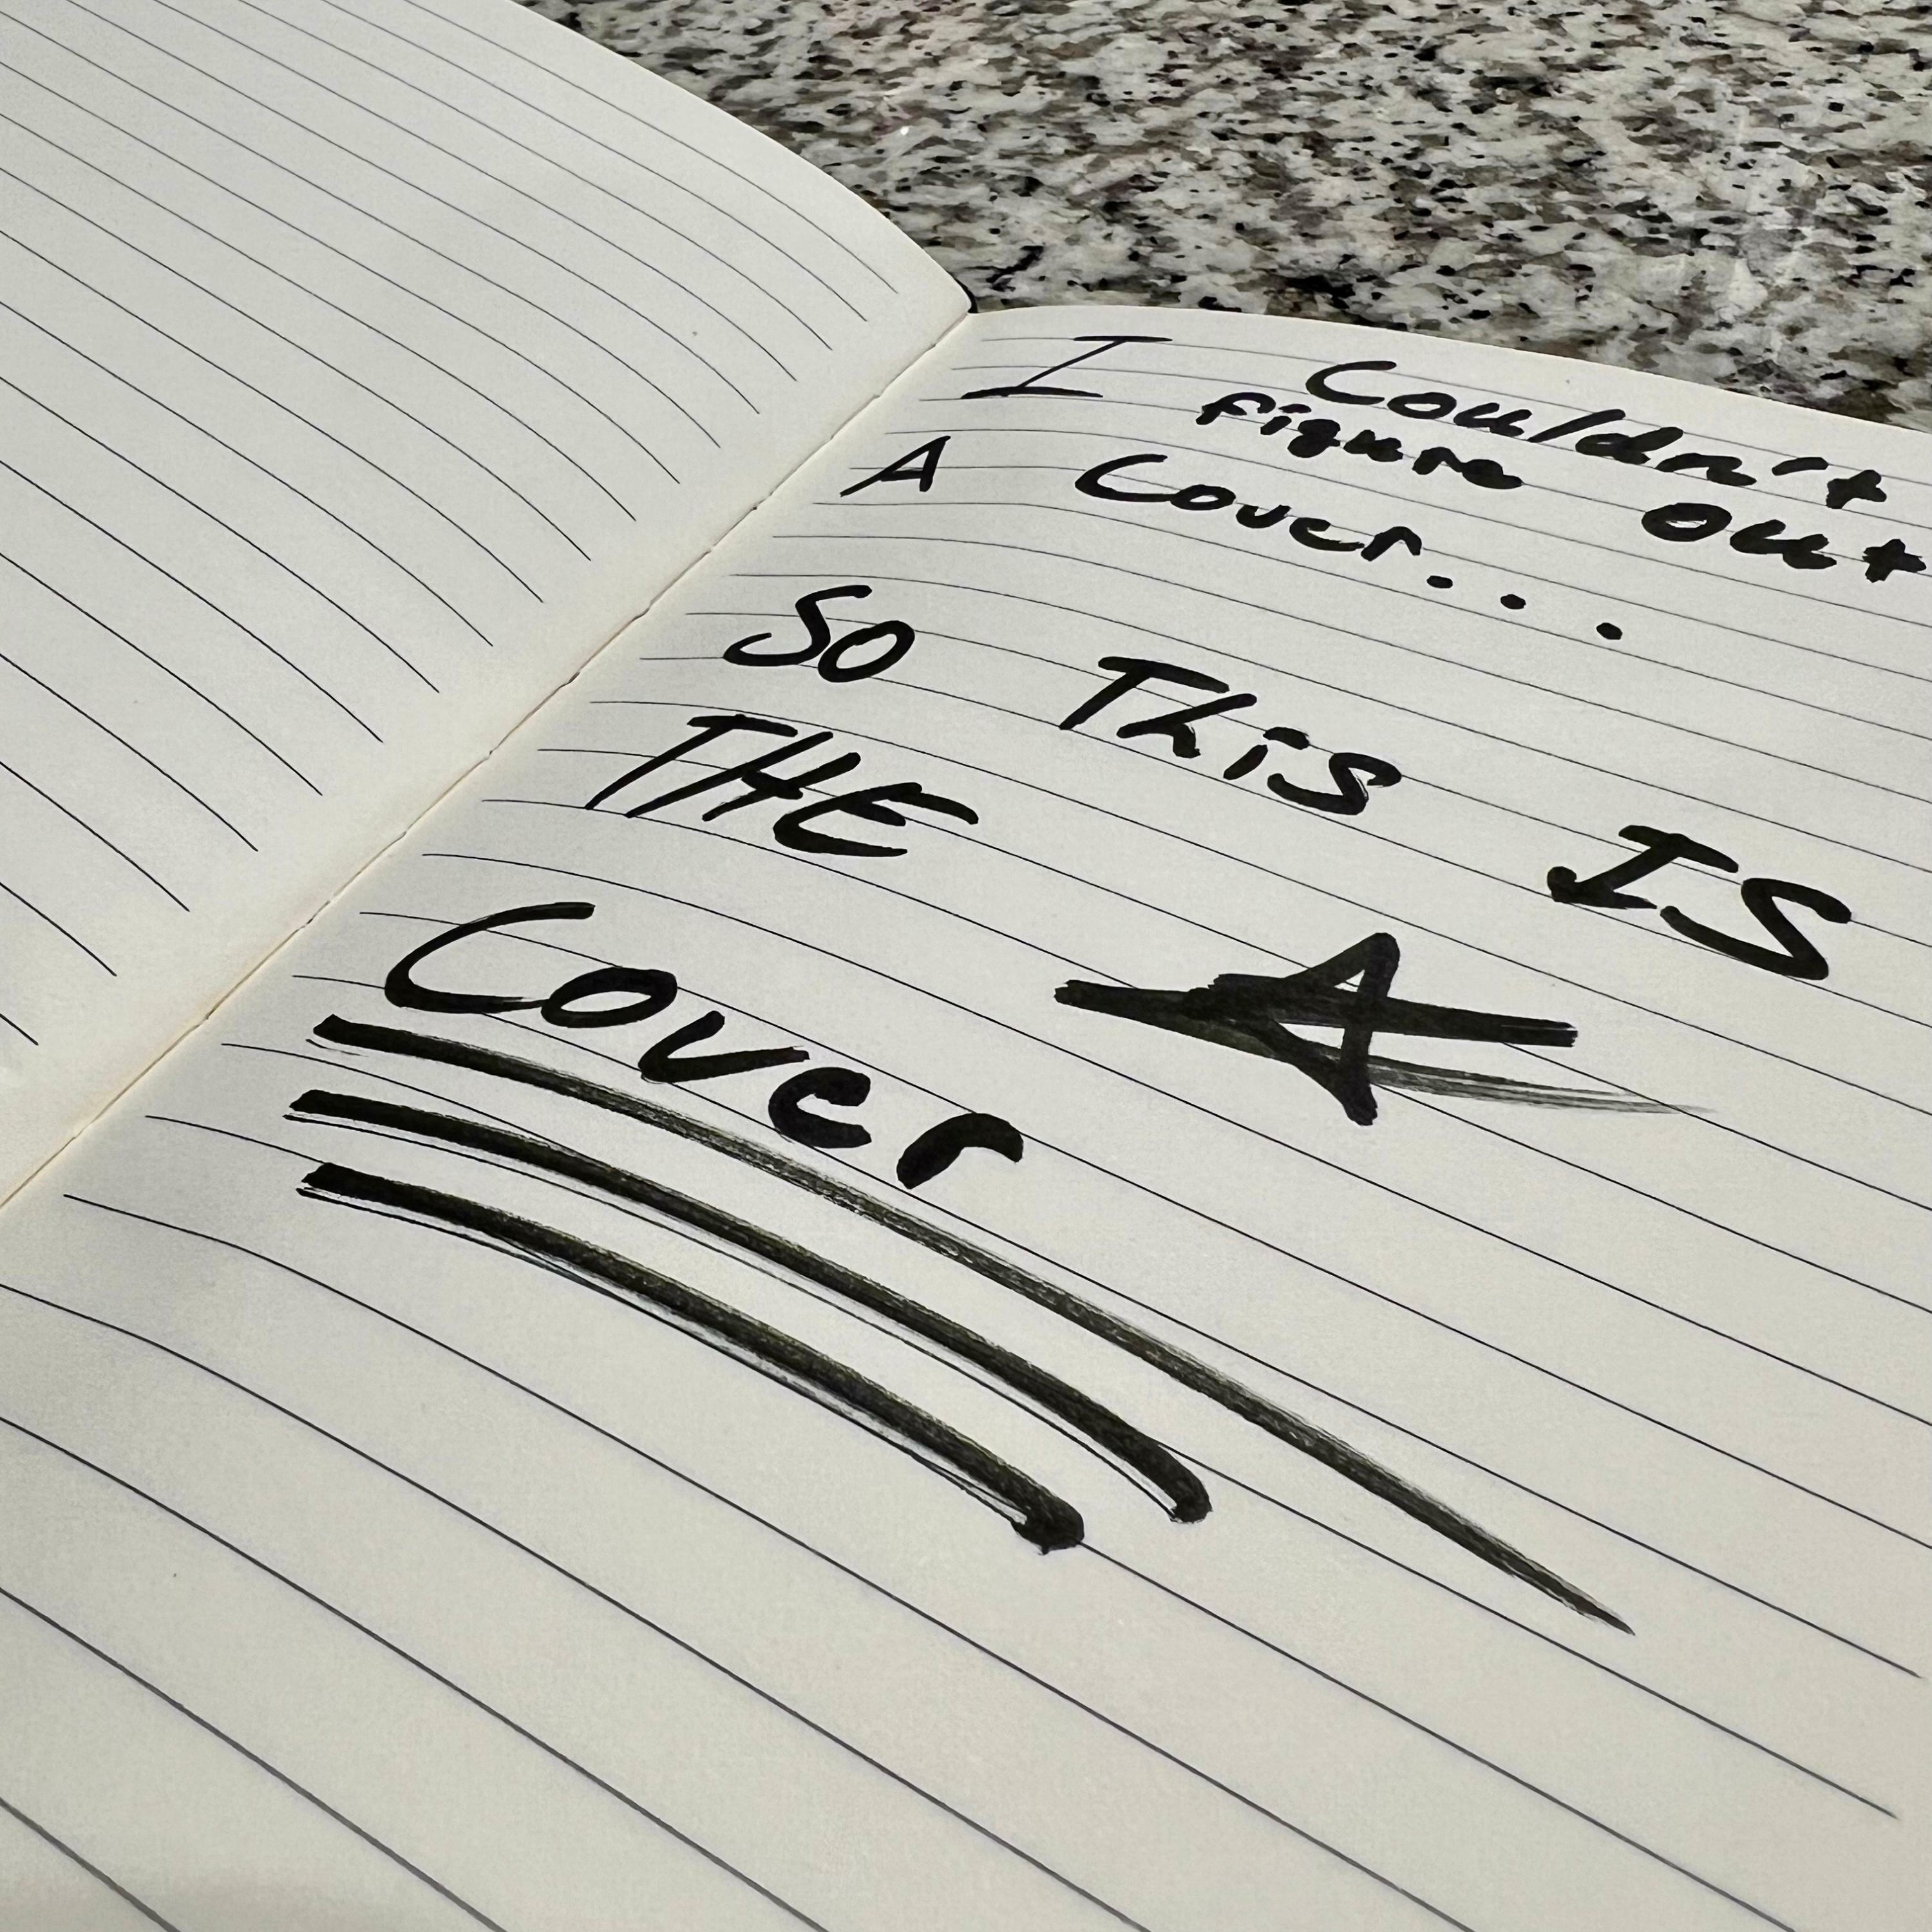 I Couldn't
figure out
A Cover...
So This IS
THE A
Cover